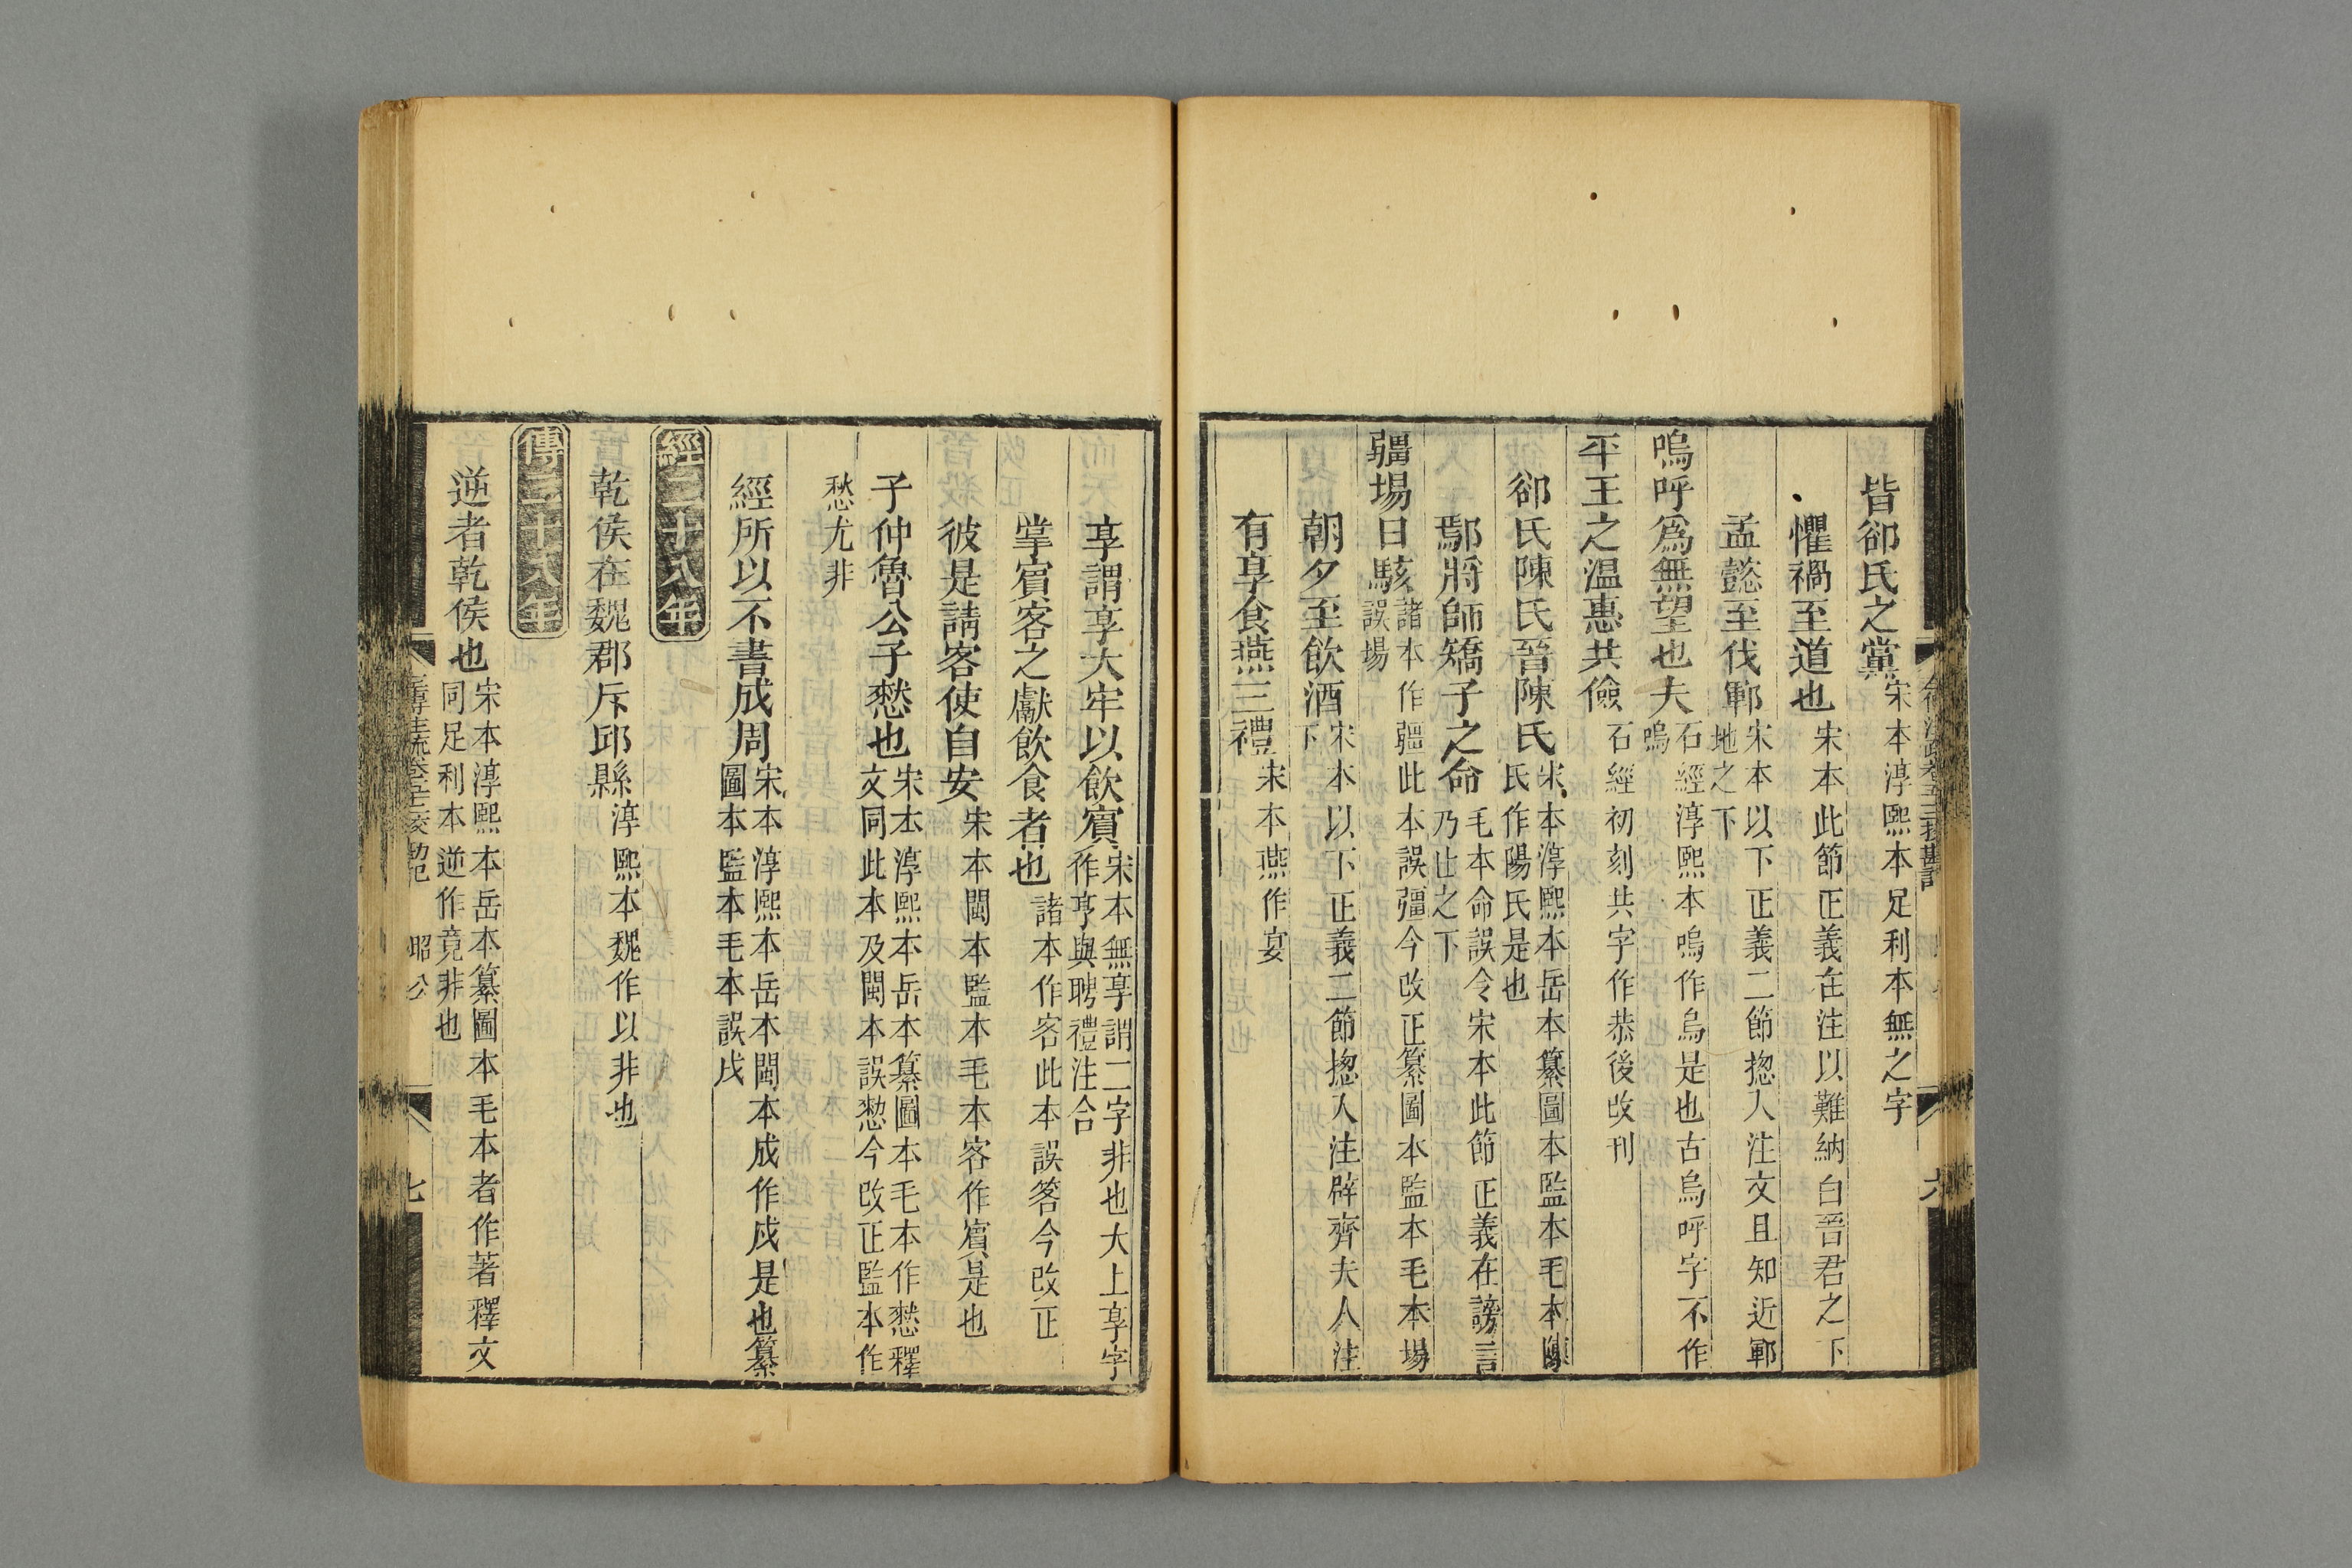 皆郤氏之黨宋本淳熙本足利本無之字
懼禍至道也宋本此節正義在注以難納白吾君之下
孟懿至伐鄆宋本以下正義二節揔入注文且知近鄆地之下
嗚呼爲無望也夫石經淳熙本嗚作烏是也古烏呼字不作嗚
平王之温惠共儉石經初刻共字作恭後改刊
郤氏陳氏晉陳氏宋本淳熙本岳本纂圖本監本毛本陳氏作陽氏是也
鄢將師矯子之命毛本命誤令宋本此節正義在謗言乃止之下
疆埸日駭諸本作疆此本誤彊今改正纂圖本監本毛本埸誤場
朝夕至飲酒宋本以下正義二節揔入注辟齊夫人注下
有享食燕三禮宋本燕作宴
享謂享大牢以飲賓宋本無享謂二字非也大上享字作亨與聘禮注合
掌賓客之獻飲食者也諸本作客此本誤答今改正
彼是請客使自安宋本閩本監本毛本客作賓是也
子仲魯公子憖也宋本淳熙本岳本纂圖本毛本作憖釋文同此本及閩本誤憗今改正監本作
愁尤非
經所以不書成周宋本淳熙本岳本閩本成作戍是也纂圖本監本毛本誤戌
經二十八年
乾侯在魏郡斥邱縣淳熙本魏作以非也
傳二十八年
逆者乾侯也宋本淳熙本岳本纂圖本毛本者作著釋文同足利本逆作竟非也
昭公
七